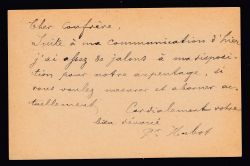 Cher Confrère,
Suite à ma communication d'hier
j'ai assez de jalons à ma disposi-
tion pour notre arpentage, si
vous voulez mesurer et aborner ac-
tuellement.
Cordialement votre
bien dévoué